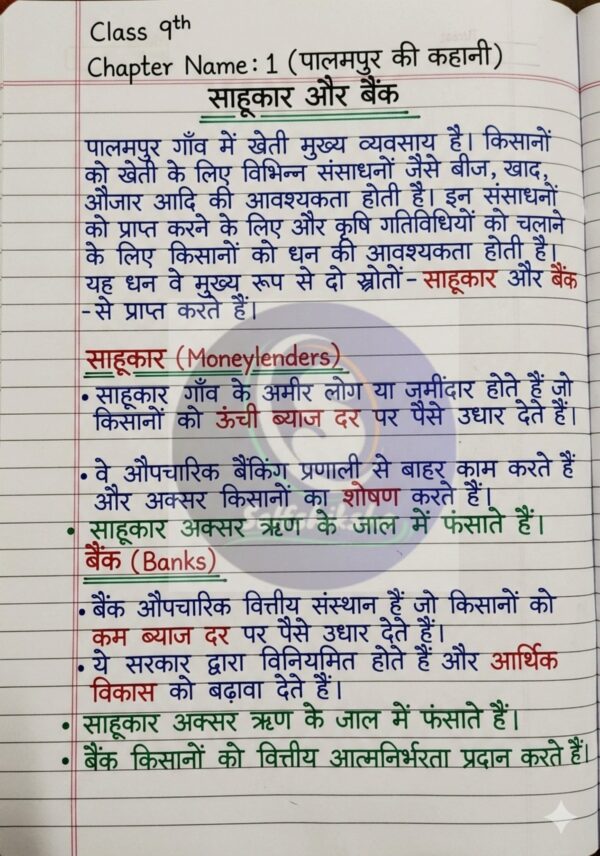 Class 9th
Chapter Name: 1 (पालमपुर की कहानी)
साहूकार और बैंक
पालमपुर गाँव में खेती मुख्य व्यवसाय है। किसानों
को खेती के लिए विभिन्न संसाधनों जैसे बीज, खाद,
औजार आदि की आवश्यकता होती है। इन संसाधनों
को प्राप्त करने के लिए और कृषि गतिविधियों को चलाने
के लिए किसानों को धन की आवश्यकता होती है।
यह धन वे मुख्य रूप से दो स्रोतों- साहूकार और बैंक
- से प्राप्त करते हैं।
साहूकार (Moneylenders)
• साहूकार गाँव के अमीर लोग या जमींदार होते हैं जो
किसानों को ऊंची ब्याज दर पर पैसे उधार देते हैं।
• वे औपचारिक बैंकिंग प्रणाली से बाहर काम करते हैं
और अक्सर किसानों का शोषण करते हैं।
• साहूकार अक्सर ऋण के जाल में फंसाते हैं।
बैंक (Banks)
• बैंक औपचारिक वित्तीय संस्थान हैं जो किसानों को
कम ब्याज दर पर पैसे उधार देते हैं।
• ये सरकार द्वारा विनियमित होते हैं और आर्थिक
विकास को बढ़ावा देते हैं।
• साहूकार अक्सर ऋण के जाल में फंसाते हैं।
• बैंक किसानों को वित्तीय आत्मनिर्भरता प्रदान करते हैं।